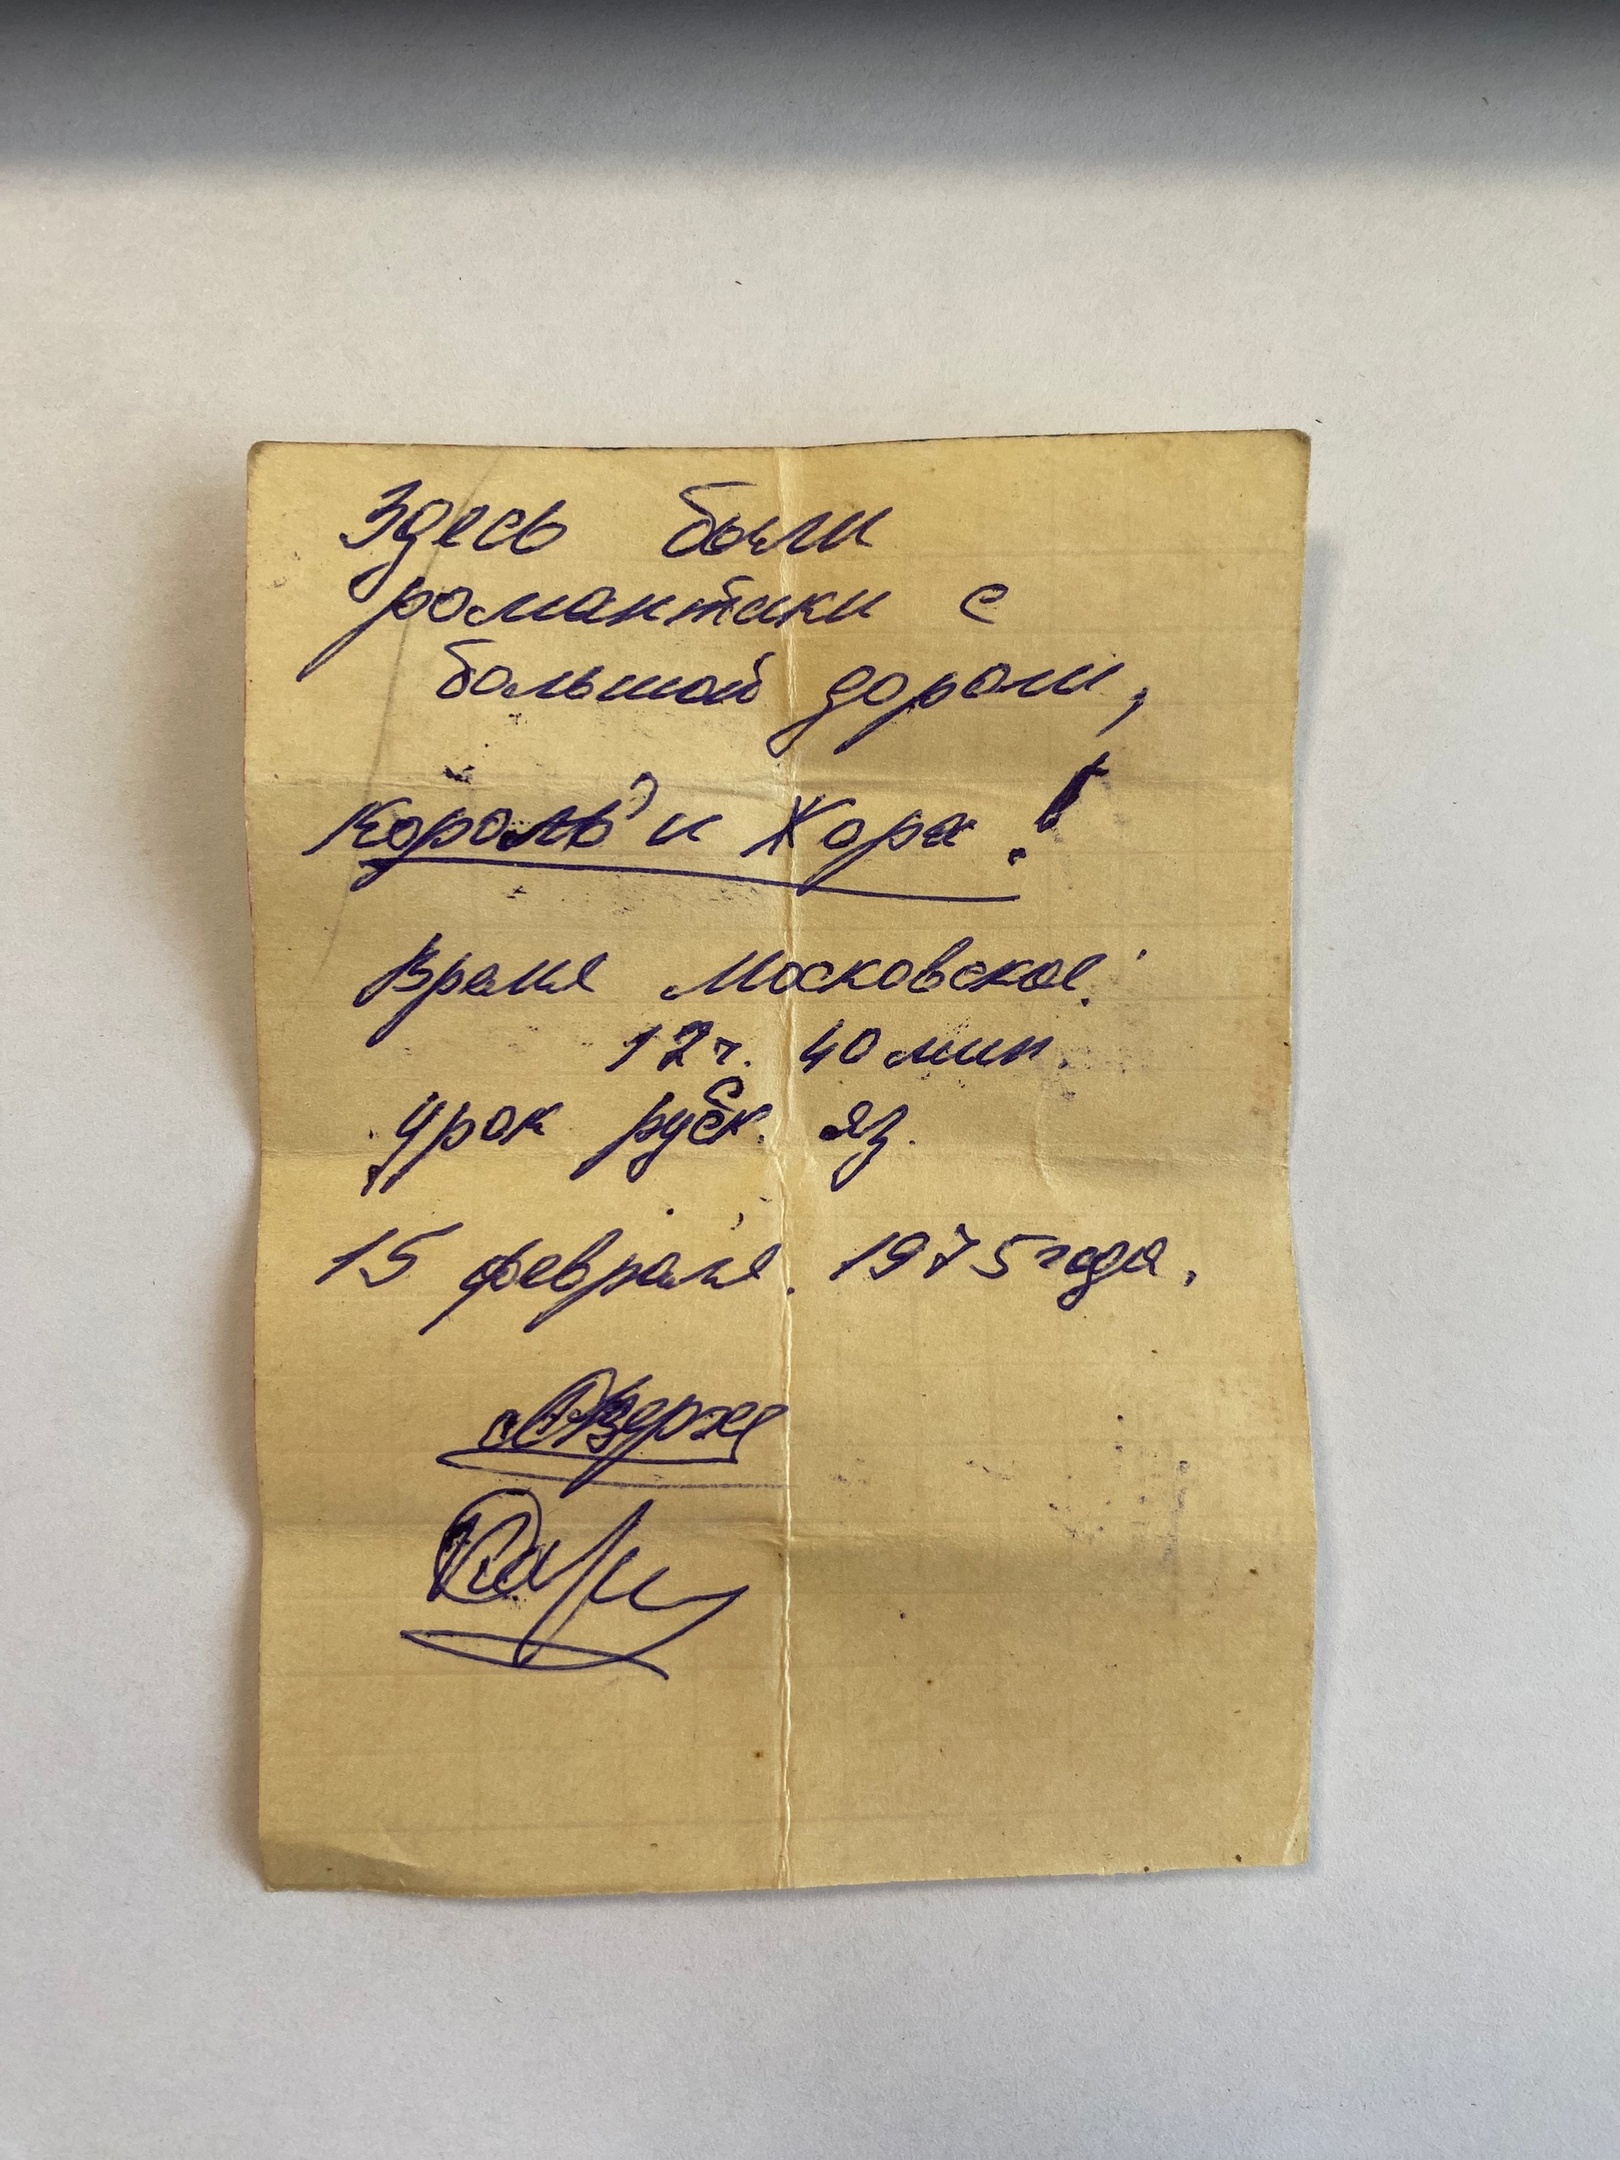 Здесь были
романтики с
большой дороги,
Король и Жора!
Время Московское:
12 ч. 40 мин.
Урок русск. яз.
15 февраля. 1975 года.